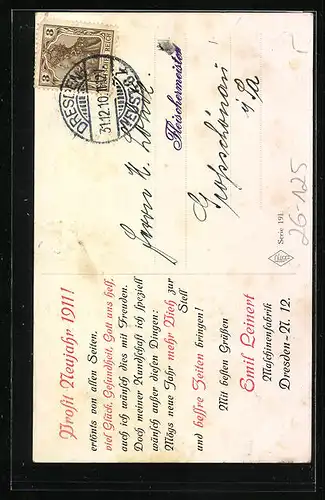 Prosit Neujahr 1911!
ertönts von allen Seiten.
viel Glück, Gesundheit, Gott uns helf,
auch ich wünsch dies mit Freuden.
Doch meiner Kundschaft ich speziell
wünsch außer diesen Dingen:
Mögs neue Jahr mehr Vieh zur
Stell
und bessre Zeiten bringen!
Mit besten Grüßen
Emil Leinert
Maschinenfabrik
Dresden-A. 12.
3
REICH
3
DRESDEN
31.12.10
NEUST.
Herrn H.
Fleischermeister
Grossschönau
i/Sa
Serie 191.
26-125